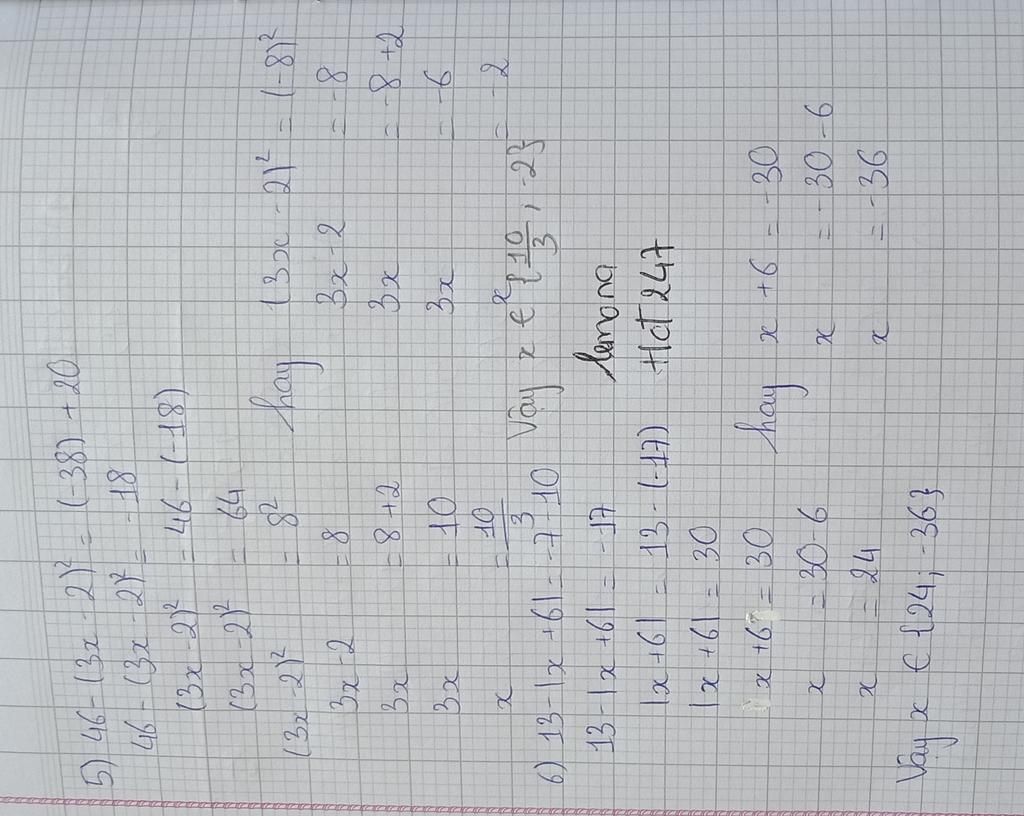 5) 46 - (3x - 2)² = (-38) + 20
46 - (3x - 2)² = -18
(3x - 2)² = 46 - (-18)
(3x - 2)² = 64
(3x - 2)² = 8² hay (3x - 2)² = (-8)²
3x - 2 = 8 3x - 2 = -8
3x = 8 + 2 3x = -8 + 2
3x = 10 3x = -6
x = 10/3 x = -2
Vậy x € {10/3 ; -2}
6) 13 - |x + 6| = -7 - 10
13 - |x + 6| = -17 lemona
|x + 6| = 13 - (-17) Hot 247
|x + 6| = 30
x + 6 = 30 hay x + 6 = -30
x = 30 - 6 x = -30 - 6
x = 24 x = -36
Vậy x € {24; -36}